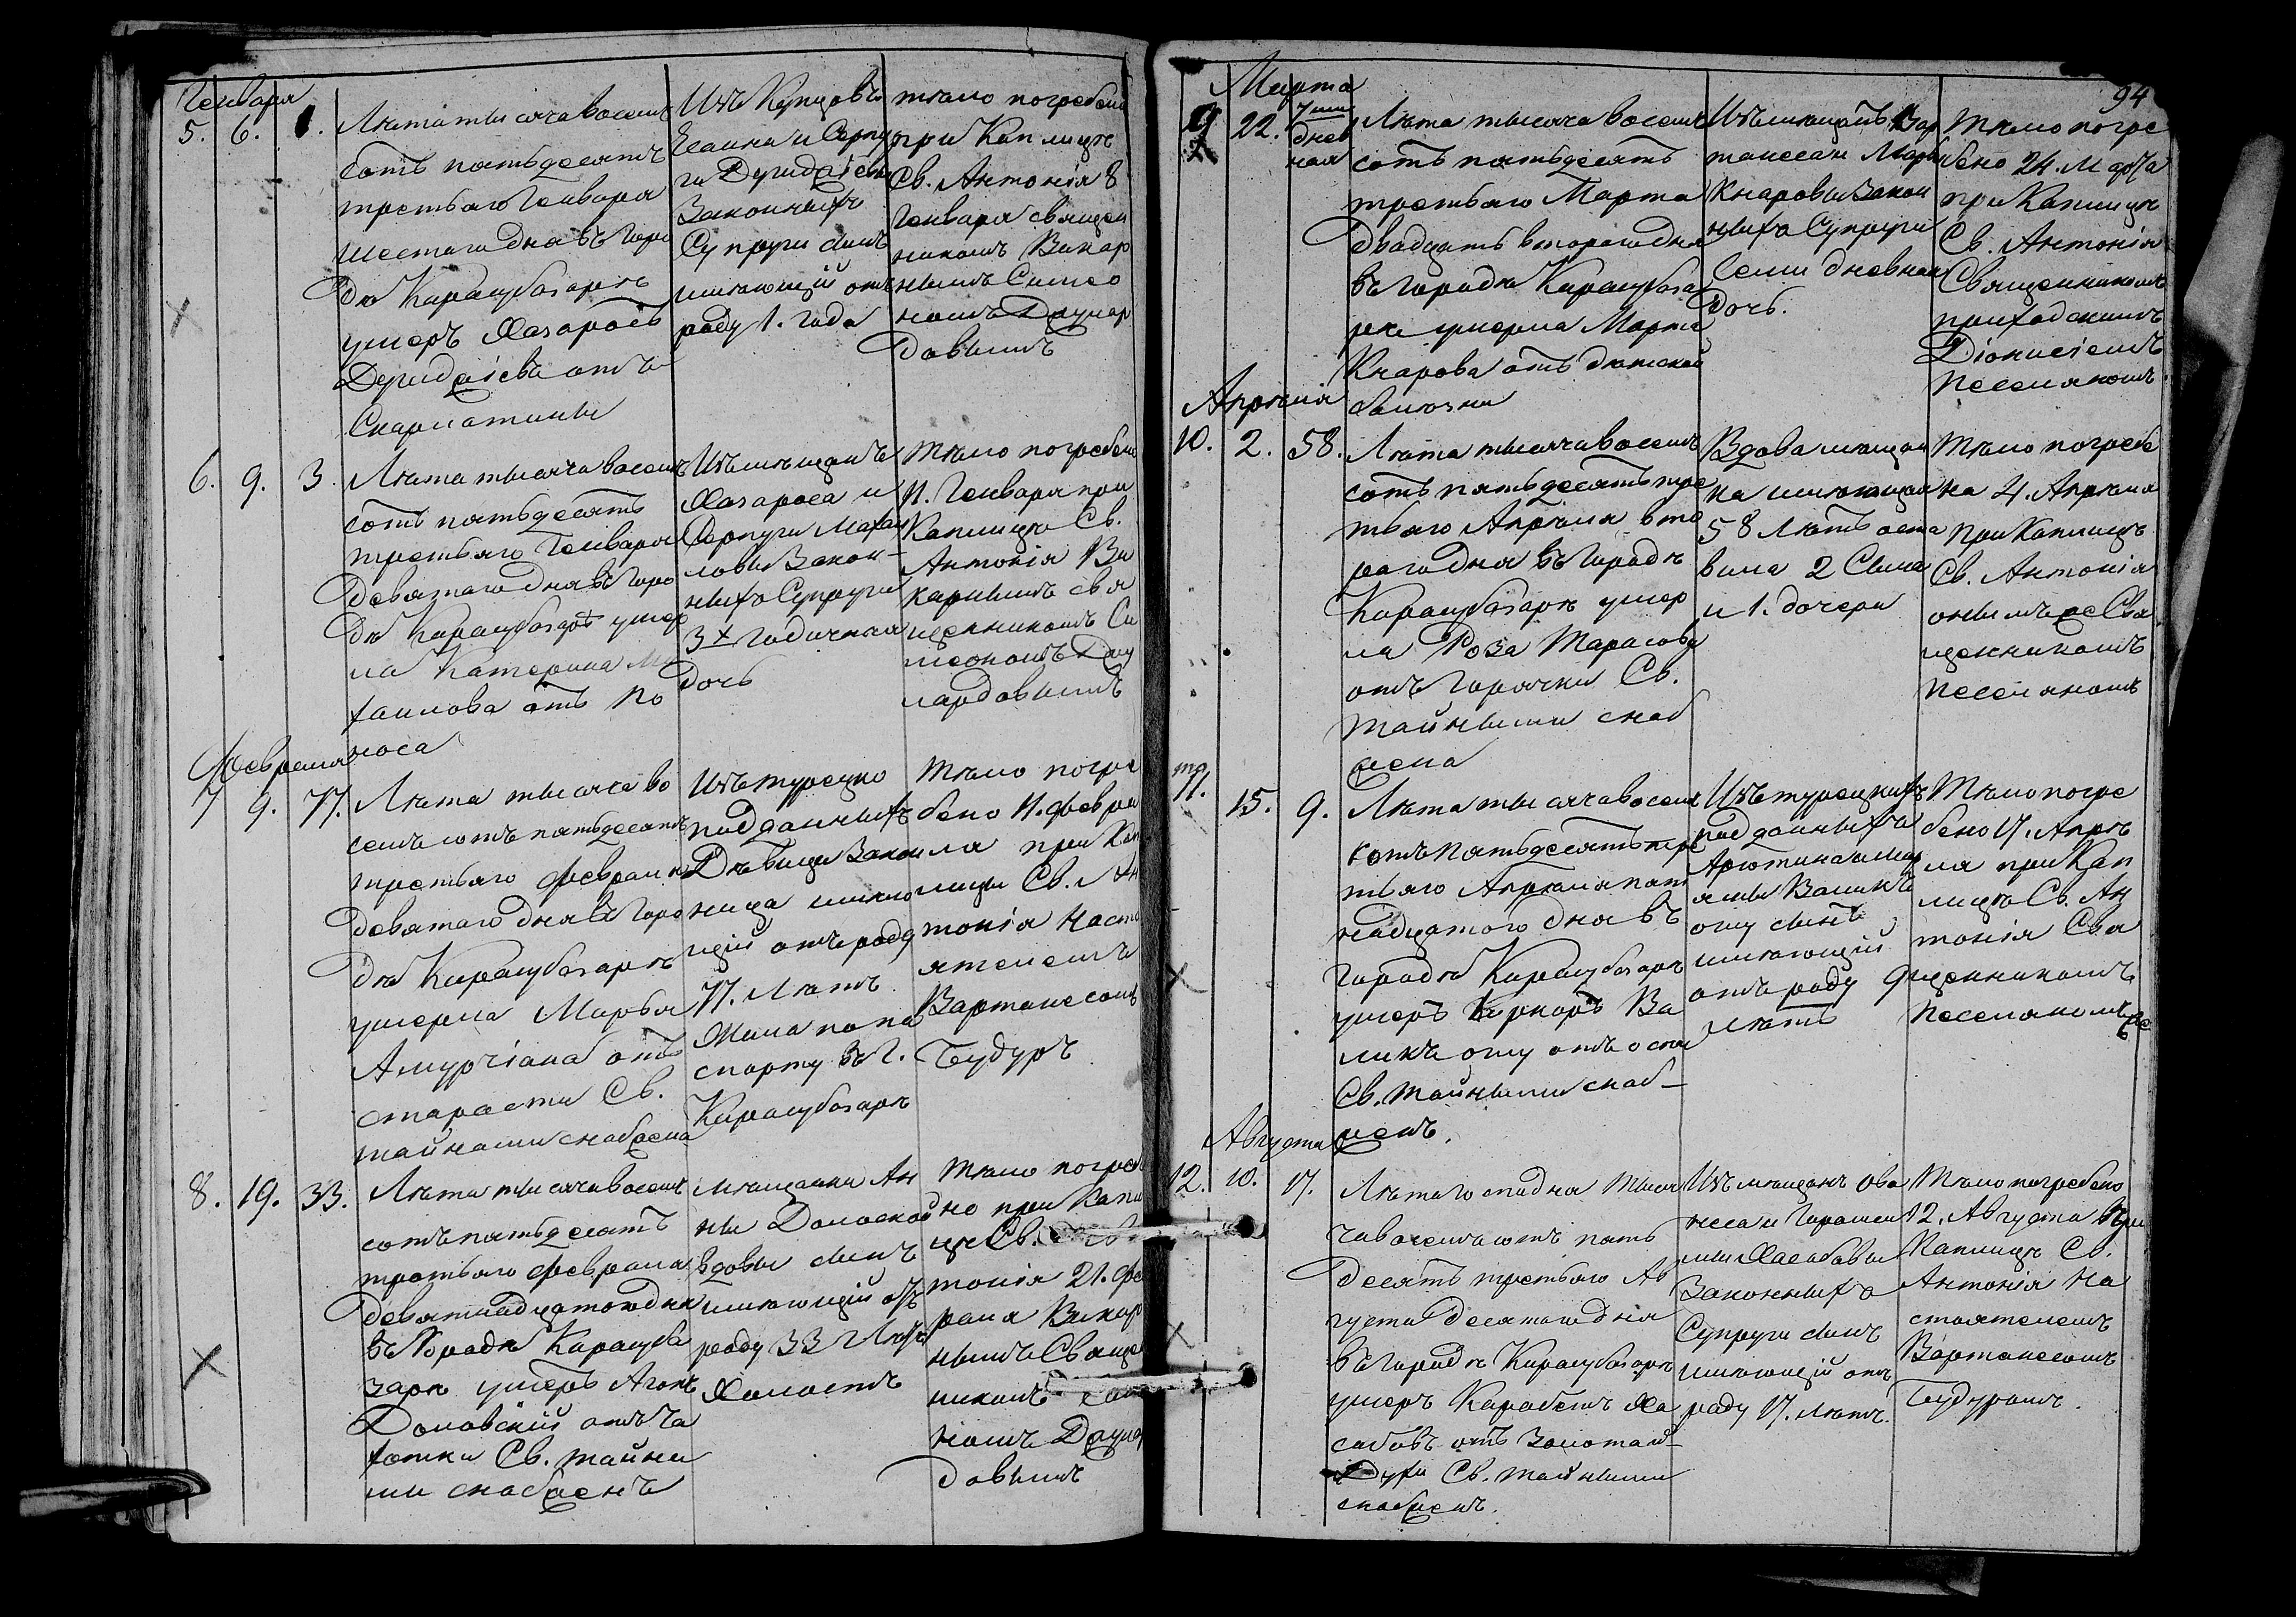 Генваря
5. 6. 1.
Лѣта тысяча восемь
сотъ пятьдесятъ
третьяго Генваря
шестаго дня въ горо
дѣ Карасубазарѣ
умеръ Хазаросъ
отъ
Скарлатины
Изъ Купцовъ
законныхъ
Супруги сынъ
имѣющій отъ
роду 1. года
тѣло погребено
при Каплицѣ
Св. Антонія 8
Генваря священ
никомъ Викар
нымъ Симео
номъ
довымъ
6. 9. 3.
Лѣта тысяча восемь
сотъ пятьдесятъ
третьяго Генваря
девятаго дня въ горо
дѣ Карасубазарѣ умер
ла Катерина
отъ по
носа
Изъ мѣщанъ
Хазароса и
закон-
ныхъ Супруги
3х годичная
дочь
тѣло погребено
11. Генваря при
Каплицѣ Св.
Антонія Ви
карнымъ свя
щенникомъ Си
меономъ
лардовымъ
Февраля
7 9. 77.
Лѣта тысяча во
семь сотъ пятьдесятъ
третьяго февраля
девятаго дня въ горо
дѣ Карасубазарѣ
умерла Марья
Амурчіана отъ
старости Св.
тайнами снабжена
Изъ турецко
подданныхъ
Дѣвица
имѣю
щій отъ роду
77. Лѣтъ
Жила по па
спорту въ г.
Карасубазарѣ
тѣло погре
бено 11. февра
ля при Кап
лицы Св. Ан
тонія Насто
ятелемъ
Вартанесомъ
Будуръ
8. 19. 33.
Лѣта тысяча восемь
сотъ пятьдесятъ
третьяго февраля
девятнадцатого дня
въ городѣ Карасуба
зарѣ умеръ
Доловскій отъ ча
хотки Св. тайна
ми снабженъ
мѣщанки Ан
ны Доловской
вдовы сынъ
имѣющій отъ
роду 33 Лѣтъ
Холостъ
тѣло погребе
но при Капли
цѣ Св. Ан
тонія 21. фе
раля Викар
нымъ Священ
никомъ
номъ
довымъ
94
Марта
9 22. 7ми
днев
ная
Лѣта тысяча восемь
сотъ пятьдесятъ
третьяго Марта
двадцать втораго дня
въ городѣ Карасубаза
рѣ умерла Марта
Кнарова отъ дѣтской
болѣзни
Изъ мѣщанъ Вар
танесан
Кнаровы закон
ныхъ Супруги
семи дневная
дочь.
Тѣло погре
бено 24. Марта
при Каплицѣ
Св. Антонія
Священникомъ
приходскимъ
Діонисіемъ
Апрѣля
10. 2. 58.
Лѣта тысяча восемь
сотъ пятьдесятъ тре
тьяго Апрѣля вто
раго дня въ городѣ
Карасубазарѣ умер
ла Роза Тарасова
отъ горячки Св.
Тайными снаб
жена
Вдова мѣщан
ка имѣющая
58 Лѣтъ оста
вила 2 Сына
и 1. дочери
Тѣло погребе
на 4. Апрѣля
при Каплицѣ
Св. Антонія
онымъ же Свя
щенникомъ
11. 15. 9.
Лѣта тысяча восемь
сотъ пятьдесятъ тре
тьяго Апрѣля пят
надцатого дня въ
городѣ Карасубазарѣ
умеръ Киркоръ Ва
ликъ оглу отъ оспы
Св. тайными снаб-
женъ.
Изъ турецкихъ
подданныхъ
Валикъ
оглу сынъ
имѣющій
отъ роду 9
лѣтъ
Тѣло погре
бено 17. Апрѣ
ля при Кап
лицѣ Св. Ан
тонія Свя
щенникомъ
Августа
12. 10. 17.
Лѣта Господня тыся
ча восемь сотъ пять
десятъ третьяго Ав
густа десятаго дня
въ городѣ Карасубазарѣ
умеръ Карабетъ Ха
сабовъ отъ золотой-
Св. тайными
снабженъ.
Изъ мѣщанъ Ова
неса и
Хасабовы
Законныхъ
Супруги сынъ
имѣющій отъ
роду 17. лѣтъ.
Тѣло погребено
12. Августа при
Каплицѣ Св.
Антонія На
стоятелемъ
Вартанесомъ
Будуромъ.